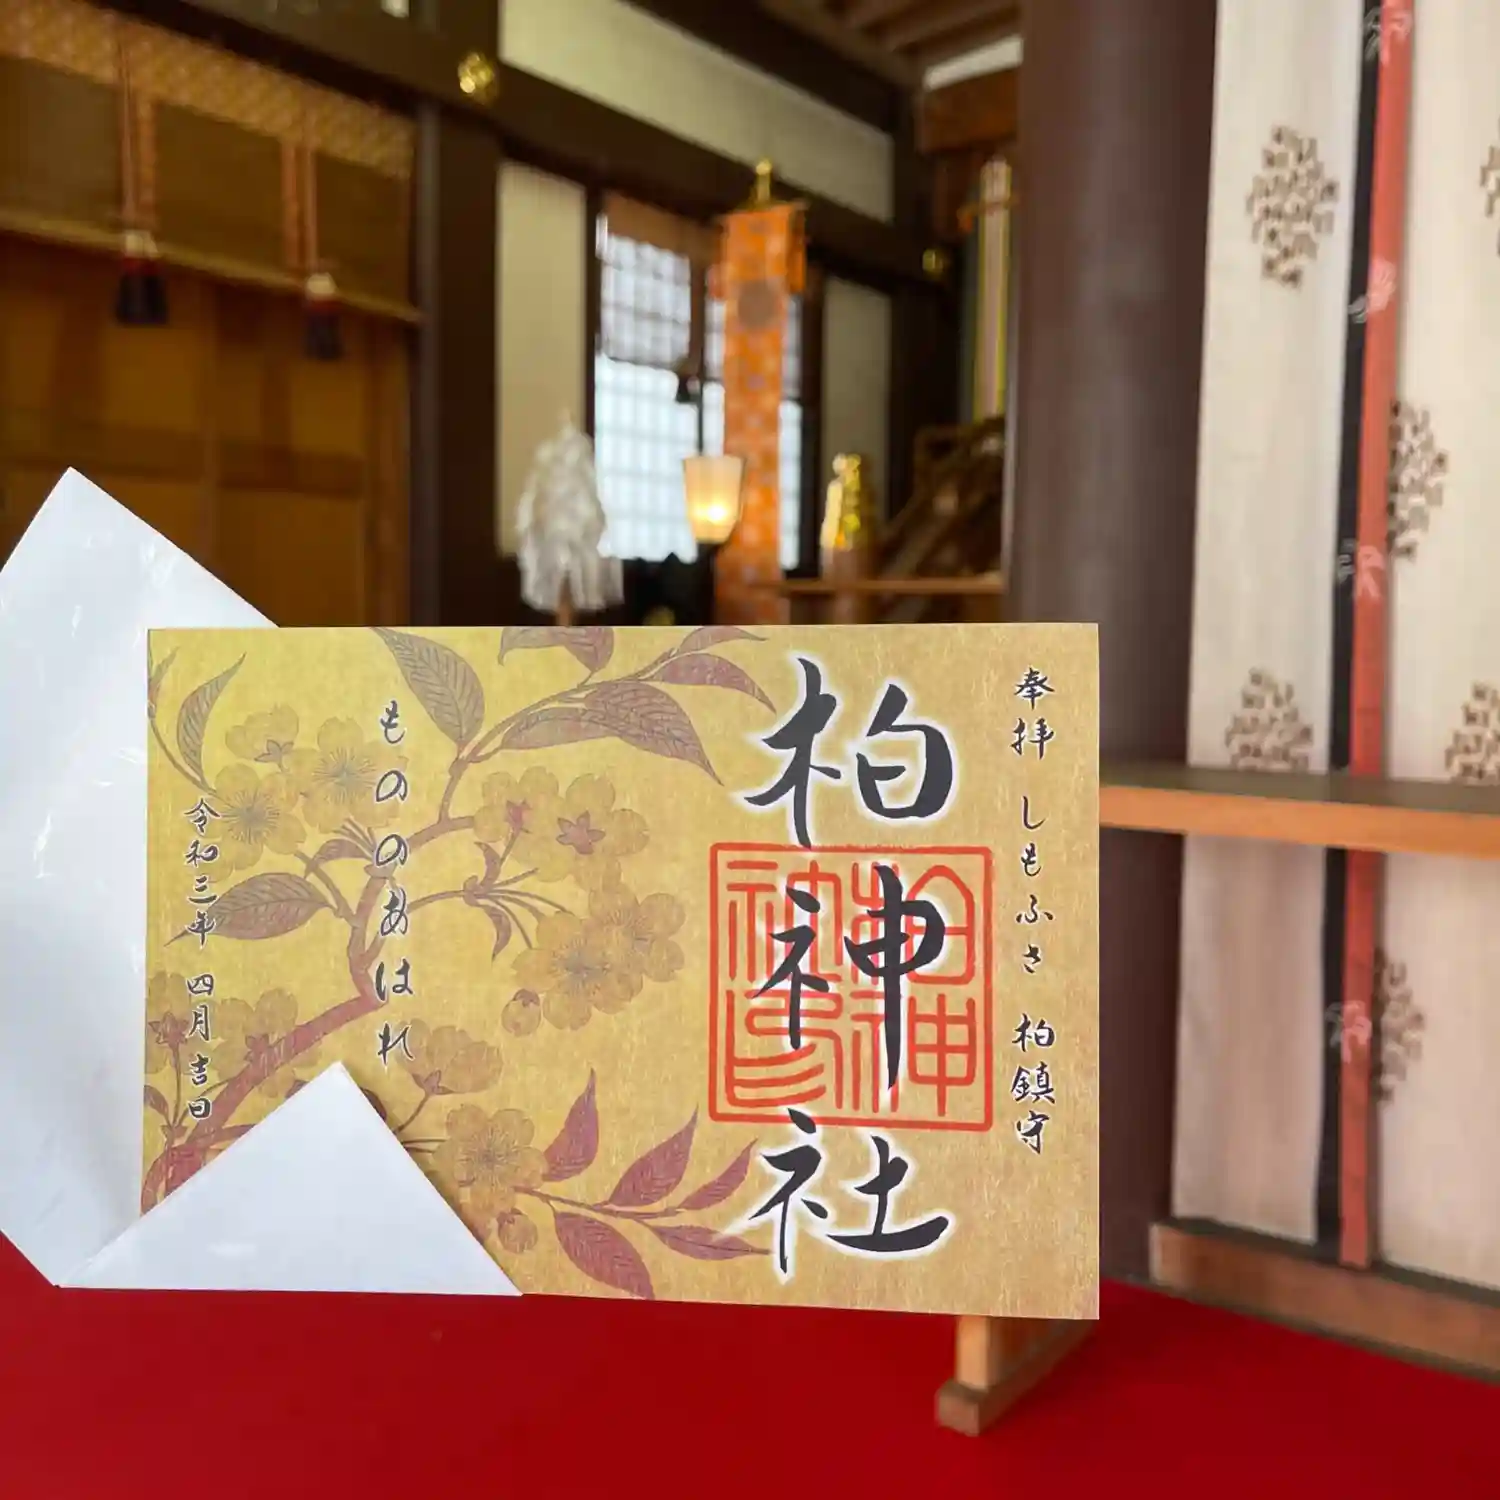 奉拝 しもふさ 柏鎮守
柏神社
柏神
社印
もののあはれ
令和三年 四月吉日